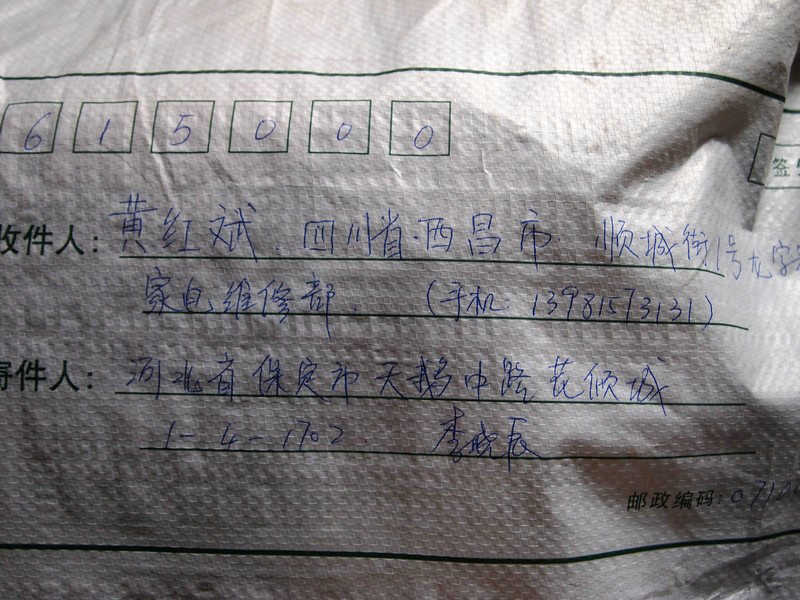 615000
收件人: 黄红斌. 四川省.西昌市 顺城街1号九字
家电维修部. (手机: 13981573131)
寄件人: 河北省保定市天鹅中路花倾城
1-4-1702 李晓辰
邮政编码: 0710
签